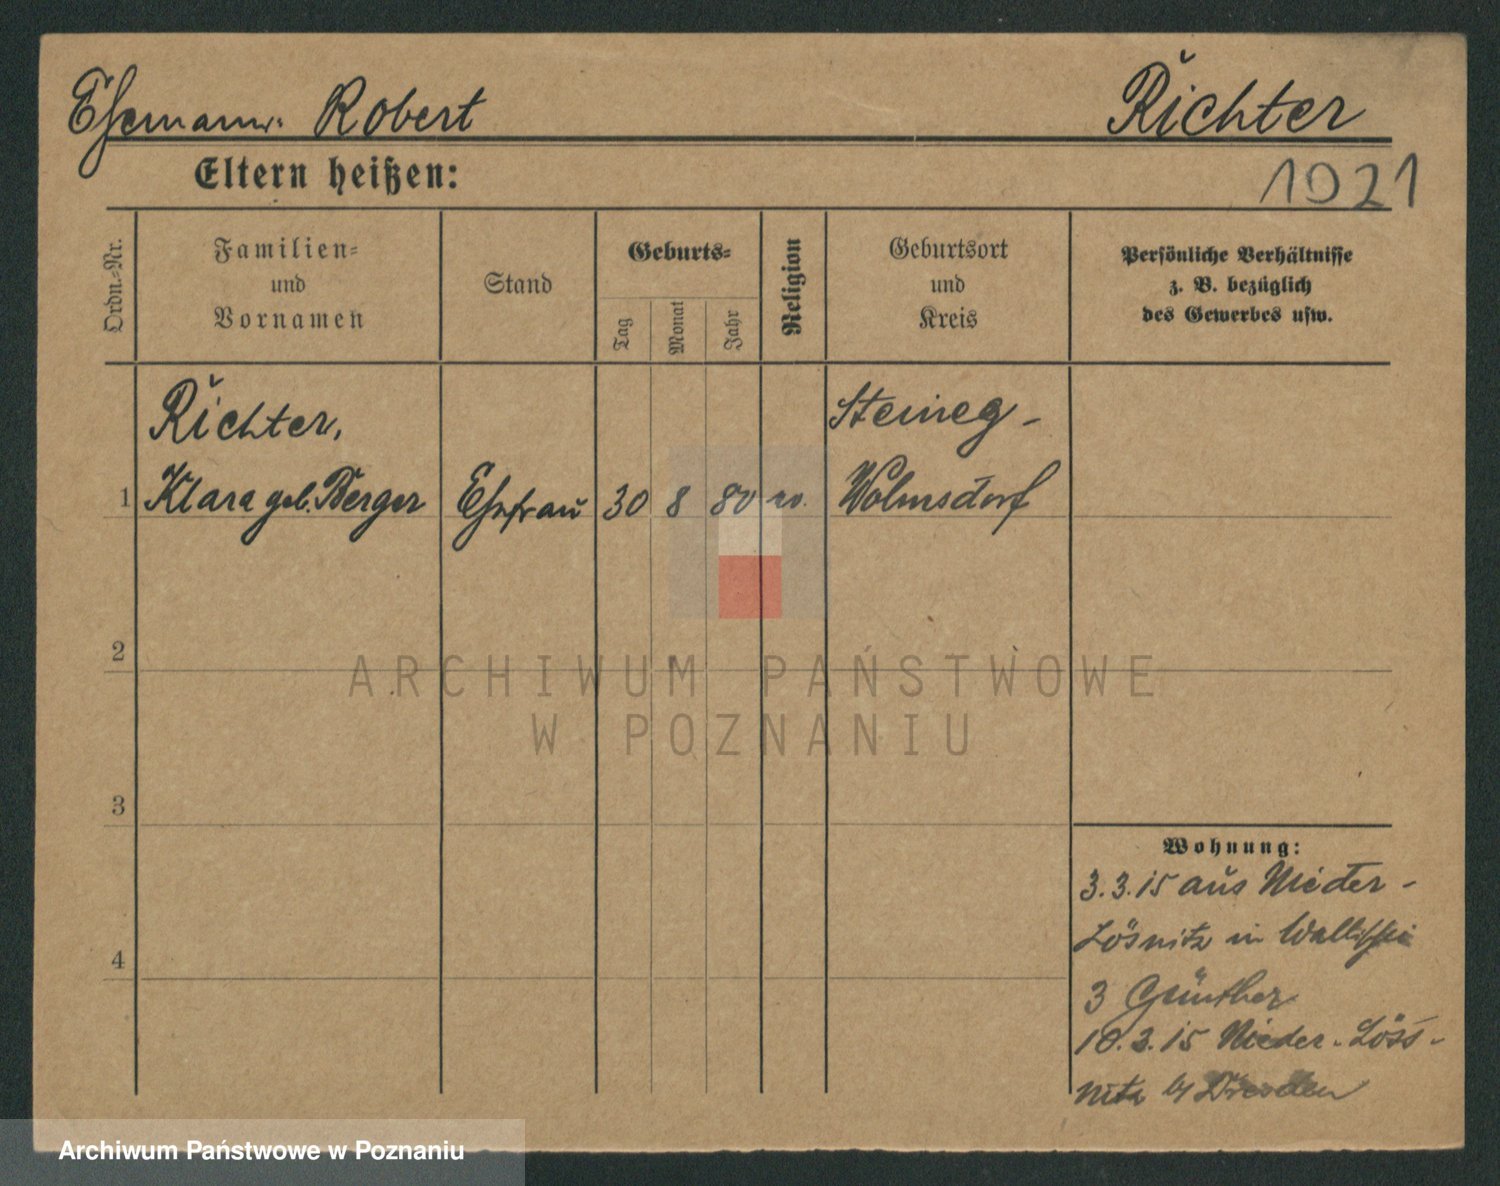 Ehemann: Robert Richter
Eltern heißen:
1921
Ordn.-Nr.
Familien-
und
Vornamen
Stand
Geburts-
Tag
Monat
Jahr
Religion
Geburtsort
und
Kreis
Persönliche Verhältnisse
z. B. bezüglich
des Gewerbes usw.
Richter,
Steineg-
1 Klara geb. Berger Ehefrau 30 8 80 ev. Wolmsdorf
2
ARCHIWUM PAŃSTWOWE
W POZNANIU
3
Wohnung:
3.3.15 aus Nieder-
Lösnitz in Wallischei
3 Günther
4
10.3.15 Nieder-Löss-
nitz b/ Dresden
Archiwum Państwowe w Poznaniu